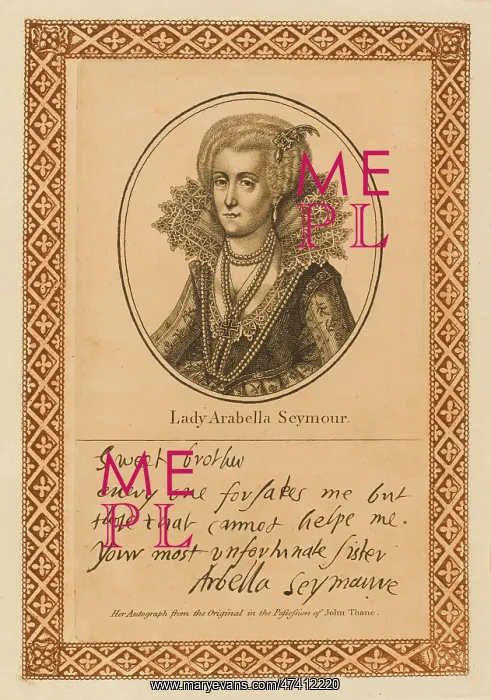 ME
PL
Lady Arabella Seymour.
Sweet brother
ME
every one forsakes me but
those that cannot helpe me.
PL
Your most unfortunate sister
Arbella Seymaure
Her Autograph from the Original in the Possession of John Thane.
www.maryevans.com/47412220